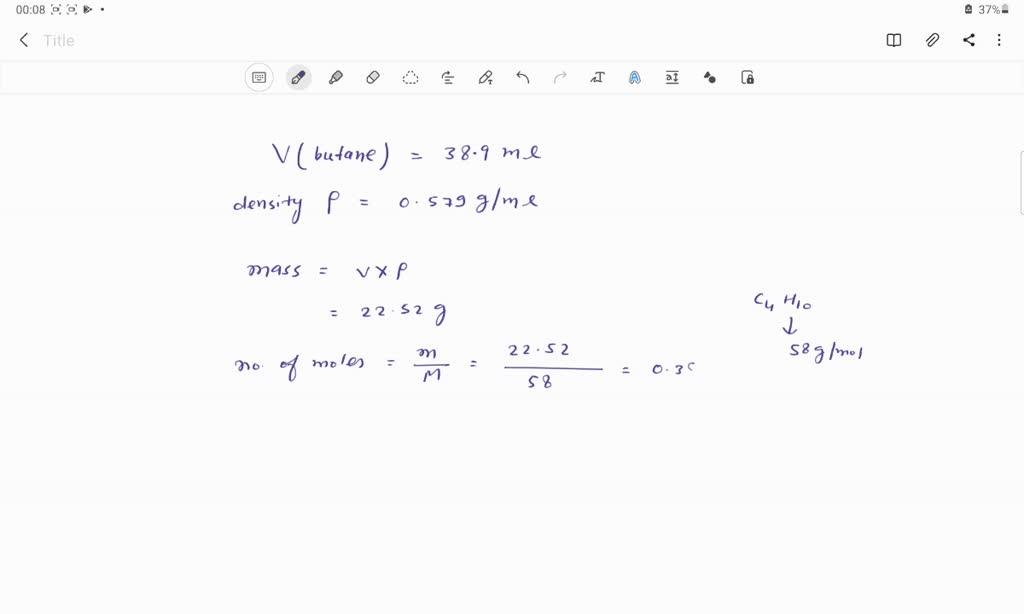 00:08 37%
Title
V(butane) = 38.9 ml
density ρ = 0.579 g/ml
mass = V × ρ
= 22.52 g
C₄ H₁₀
↓
58 g/mol
no. of moles = m/M = 22.52/58 = 0.3